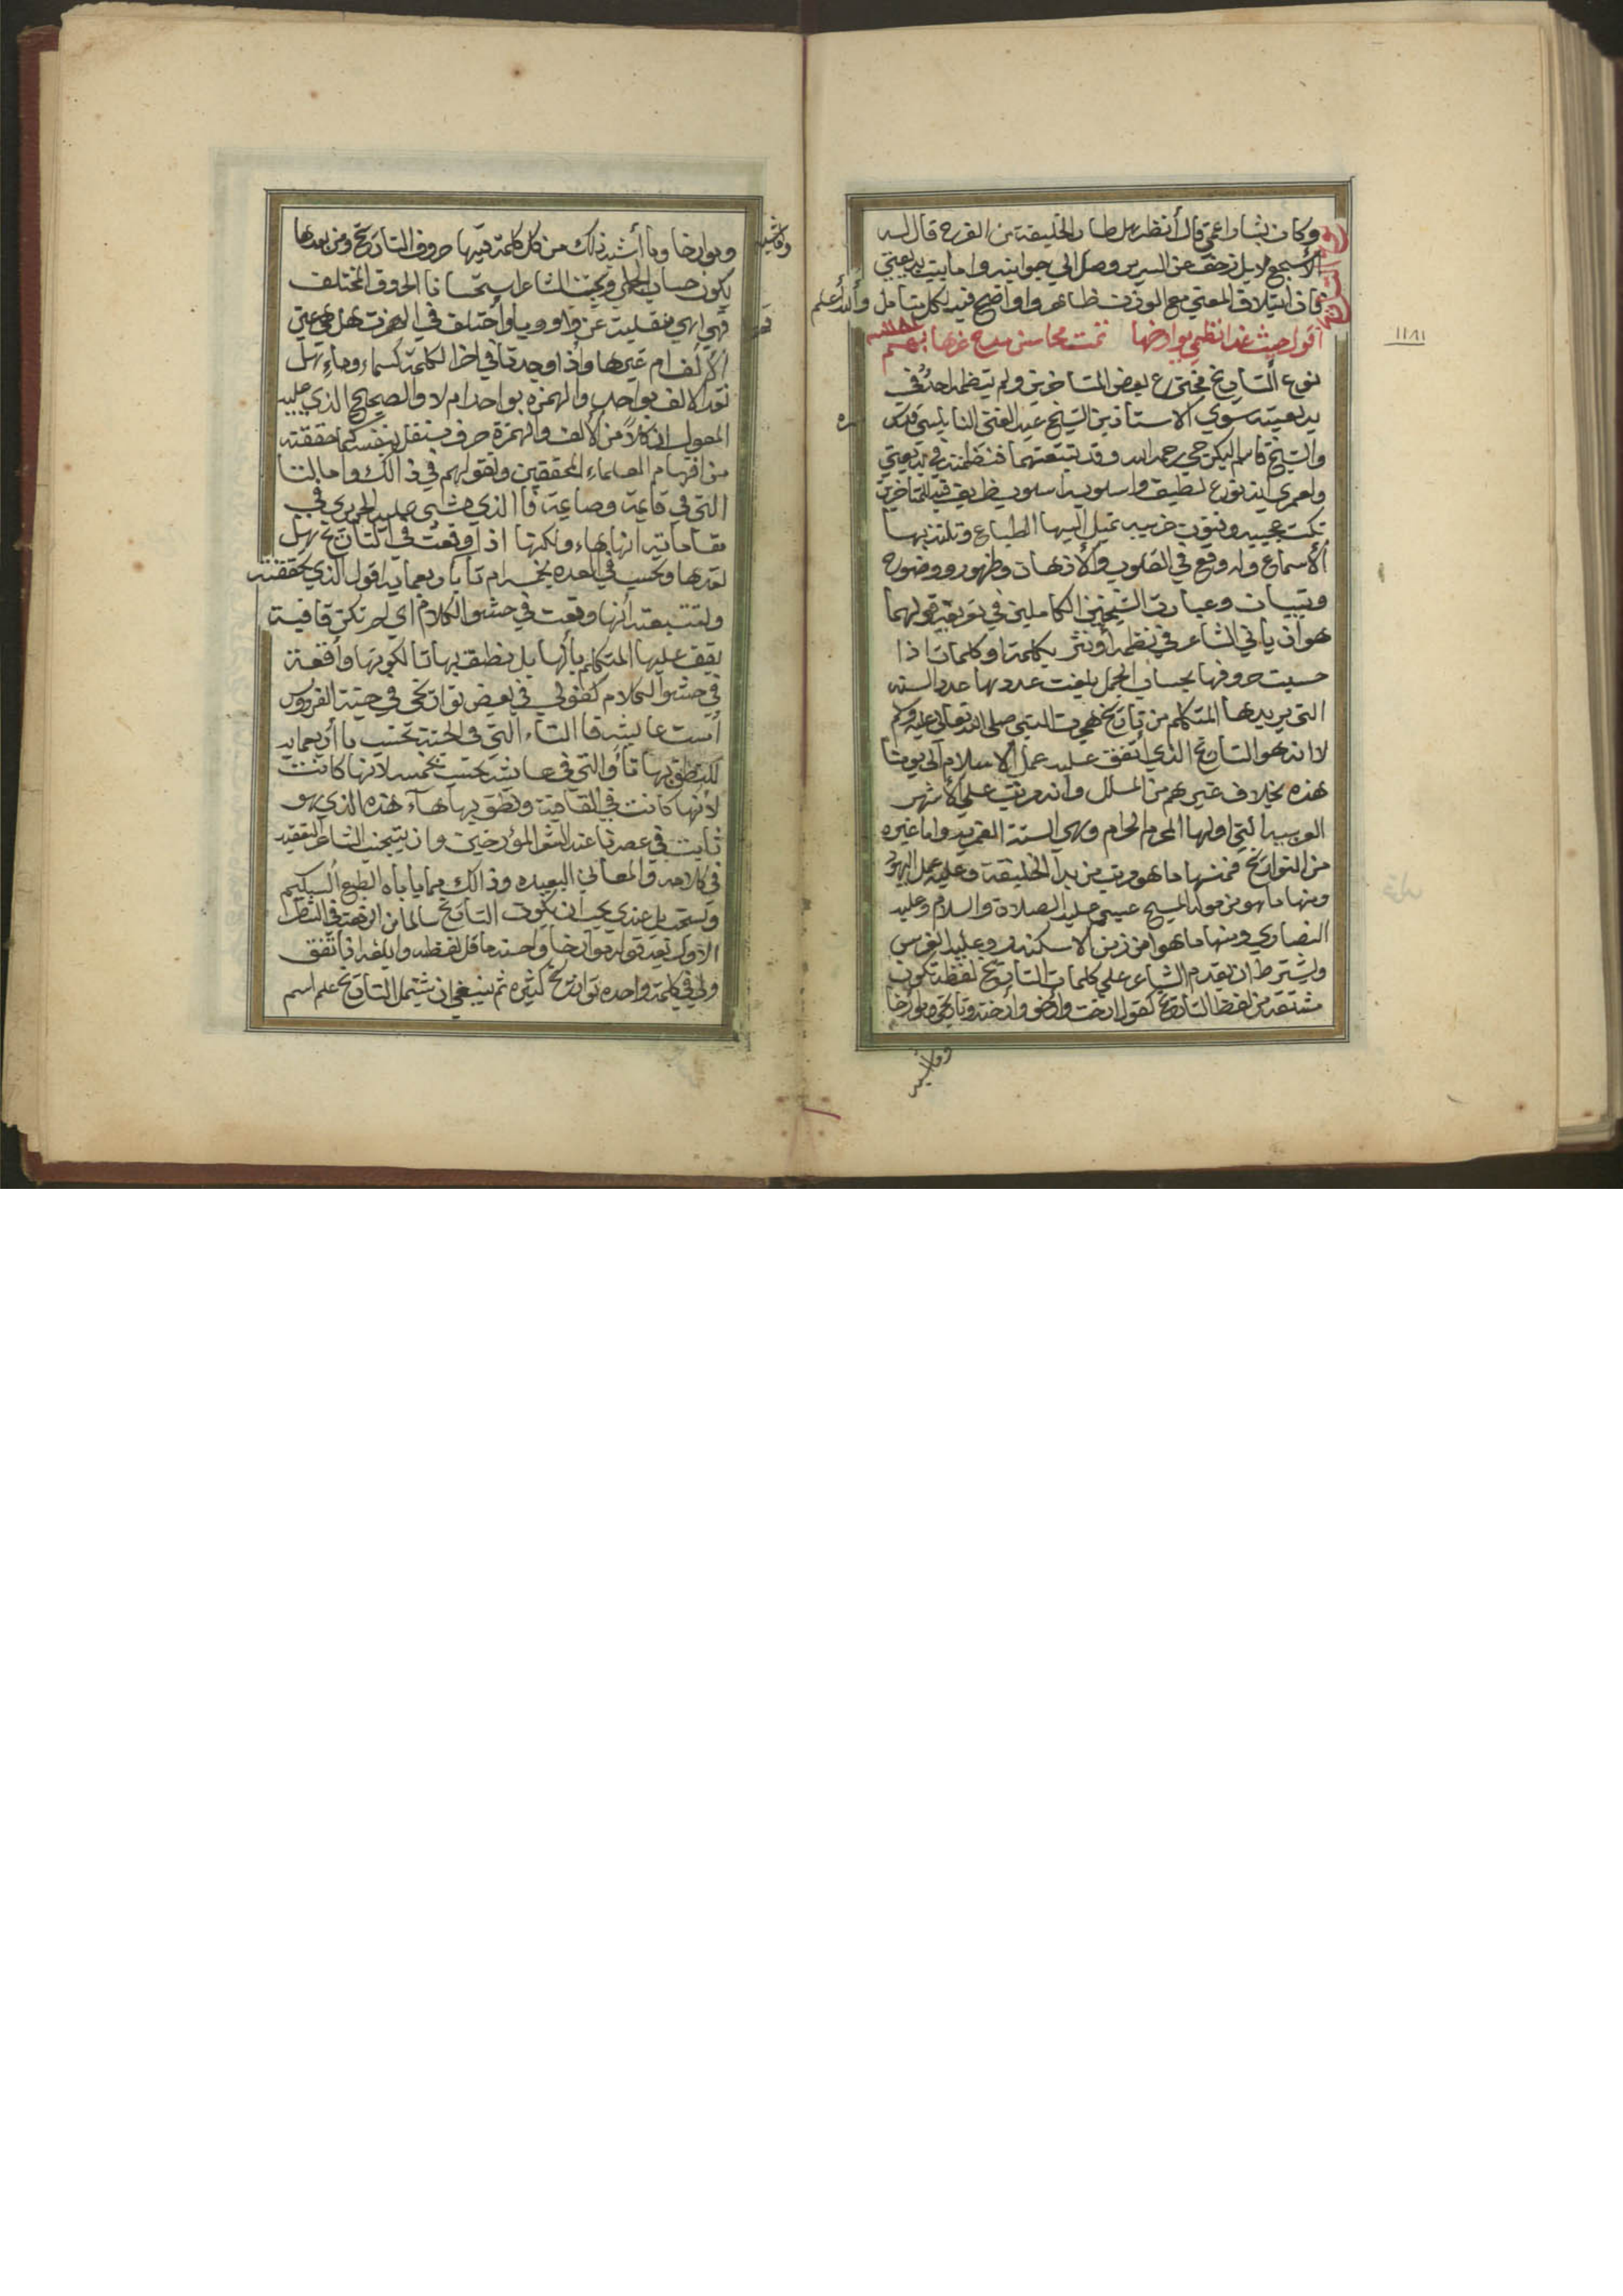 وكان بشار اعمي قال أنظر هل طار الخليفة من الفرح قال له
الأشجع لا بل زحف عن السرير وصل الي جوانبه واما بيت بديعتي
فان ايتلاف المعني مع الوزن ظاهر واواضح فيه لكل متامل والله أعلم
اقول حيث غدا نظمي يوارخها تمت محاسن مدح غرها بهم
سنة ١١٨١
١١٨١
نوع التاريخ
نوع ألتاريخ مخترع بعض المتاخرين ولم ينظمه احدٌ في
بديعيته سوي الاستاذين الشيخ عبد الغني النابلسي قدس سره
والشيخ قاسم البكرجي رحمه الله وقد تبعتهما فنظمته في بديعتي
ولعمري انه نوع لطيف واسلوبه اسلوب ظريف فيه للمتاخرين
نكت عجيبه وفنون غريبه تميل اليها الطباع وتلتذ بها
ألأسماع وله وقع في القلوب والأذهان وظهور ووضوح
وتبيان وعبارة الشيخين الكاملين في تعريفه قولهما
هو ان ياتي الشاعر في نظمه أو نثر بكلمة او كلمات اذا
حسبت حروفها بحساب الجمل بلغت عددها عدد السنه
التي يريدها المتكلم من تاريخ هجرت النبي صلي الله تعالي عليه وسلم
لانه هو التاريخ الذي اتفق عليه عمل الاسلام الي يومنا
هذه بخلاف غيرهم من الملل وأنه مرتب علي الأشهر
العربيه التي اولها المحرم الحرام وهي السنة القمريه واما غيره
من التواريخ فمنها ما هو مرتب من بدأ الخليقة وعليه عمل اليهود
ومنها ما هو من مولد المسيح عيسي عليه الصلاة والسلام وعليه
النصاري ومنها ما هو من زمن الاسكندر وعليه الفرس
ويشترط ان يقدم الشاعر علي كلمات التاريخ لفظة تكون
مشتقة من لفظ التاريخ كقوله ارخت وارخو وأرخته وتاريخي ومورخا
وما اشبه
ومورخا وما أشبه ذلك من كل كلمة فيها حروف التاريخ ومن بعدها
يكون حساب الجمل ويجتنب الشاعر استحسانا الحروف المختلف
فهي اي هي منقلبت عن واو ويا واختلف في الهمزت هل هي عين
الألف ام غيرها واذا وجدت في اخر الكلمة كسماء وماء هل
تعد الالف بواحد والهمزه بواحد ام لا والصحيح الذي عليه
المعول ان كلاً من الألف والهمزة حرف مستقل بنفسه كما حققته
من افهام العلماء المحققين ونقولهم في ذالك واما التا
التي في قاعة وصاعة فاالذي مشي عليه الحريري في
مقاماته انها هاء ولكنها اذا وقعت في التاريخ هل
تعدها وتحسب في العدد بخمسه ام تاء باربعمايه اقول الذي حققته
وتتبعته أنها وقعت في حشو الكلام اي لم تكن قافية
يقف عليها المتكلم بالها بل نطق بها تا لكونها واقعة
في حشو الكلام كقولي في بعض تواريخي في جنة الفردوس
أمست عايشه فا التاء التي في الجنة تحسب باأربعمايه
للنطق بها تاً والتي في عايشه تحسب بخمسه لانها كانت
لأنها كانت في القافية ونطق بها هاء هذه الذي هو
ثابت في عصرنا عند المؤرخين وان يتجنب الشاعر التعقيد
في كلامه والمعاني البعيده وذالك مما ياباه الطبع السليم
ويستحب بل عندي يجب أن يكون التاريخ سالما من
الاول بعد قوله مورخا واحسنه ما قل لفظه وابلغه اذا اتفق
ولي في كلمة واحده تواريخ كثيره ثم ينبغي ان يشتمل التاريخ علي اسم